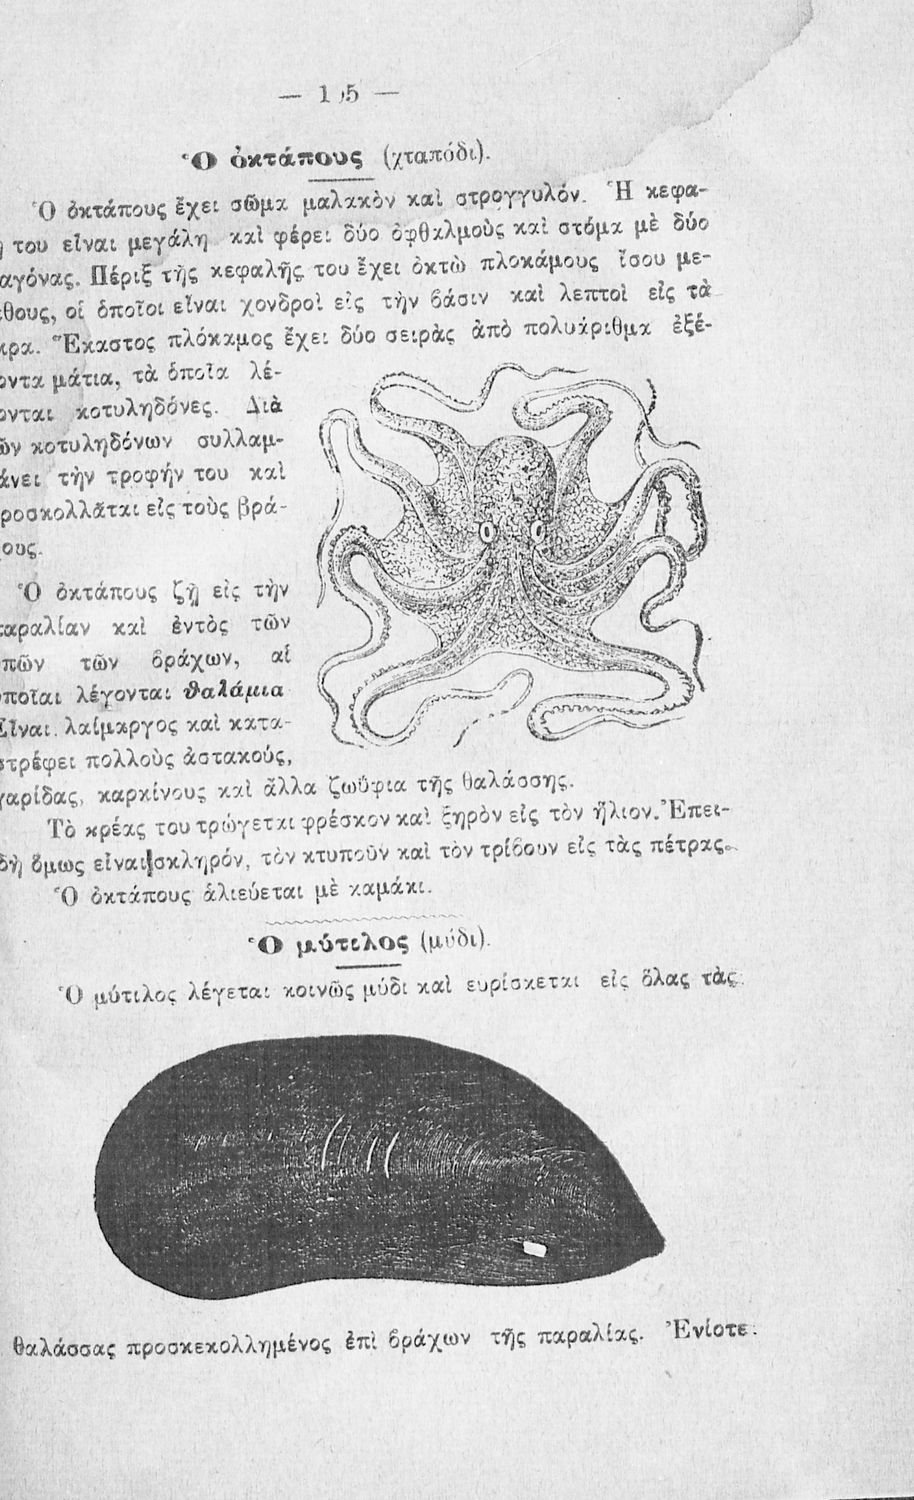 — 1 5 —
Ὁ ὀκτάπους (χταπόδι).
Ὁ ὀκτάπους ἔχει σῶμα μαλακὸν καὶ στρογγυλόν. Ἡ κεφα-
του εἶναι μεγάλη καὶ φέρει δύο ὀφθαλμοὺς καὶ στόμα μὲ δύο
αγόνας. Πέριξ τῆς κεφαλῆς του ἔχει ὀκτὼ πλοκάμους ἴσου με-
έθους, οἱ ὁποῖοι εἶναι χονδροὶ εἰς τὴν βάσιν καὶ λεπτοὶ εἰς τὰ
κρα. Ἕκαστος πλόκαμος ἔχει δύο σειρὰς ἀπὸ πολυάριθμα ἐξέ-
οντα μάτια, τὰ ὁποῖα λέ-
ονται κοτυληδόνες. Διὰ
ῶν κοτυληδόνων συλλαμ-
άνει τὴν τροφήν του καὶ
ροσκολλᾶται εἰς τοὺς βρά-
ους.
Ὁ ὀκτάπους ζῇ εἰς τὴν
αραλίαν καὶ ἐντὸς τῶν
πῶν τῶν βράχων, αἱ
ποῖαι λέγονται θαλάμια
Εἶναι λαίμαργος καὶ κατα-
στρέφει πολλοὺς ἀστακούς,
γαρίδας, καρκίνους καὶ ἄλλα ζωΰφια τῆς θαλάσσης.
Τὸ κρέας του τρώγεται φρέσκον καὶ ξηρὸν εἰς τὸν ἥλιον. Ἐπει-
δὴ ὅμως εἶναι σκληρόν, τὸν κτυποῦν καὶ τὸν τρίβουν εἰς τὰς πέτρας.
Ὁ ὀκτάπους ἁλιεύεται μὲ καμάκι.
Ὁ μύτιλος (μύδι).
Ὁ μύτιλος λέγεται κοινῶς μύδι καὶ ευρίσκεται εἰς ὅλας τὰς
θαλάσσας προσκεκολλημένος ἐπὶ βράχων τῆς παραλίας. Ἐνίοτε